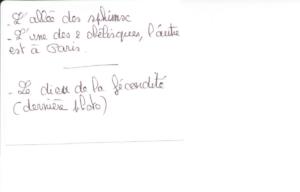 - L'allée des sphinx
- L'une des 2 obélisques, l'autre
est à Paris.
- Le dieu de la fécondité
(dernière photo)